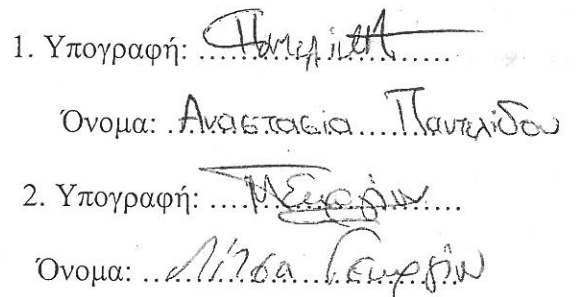 1. Υπογραφή:
Όνομα: Αναστασία Παντελίδου
2. Υπογραφή:
Όνομα: Λίτσα Γεωργίου